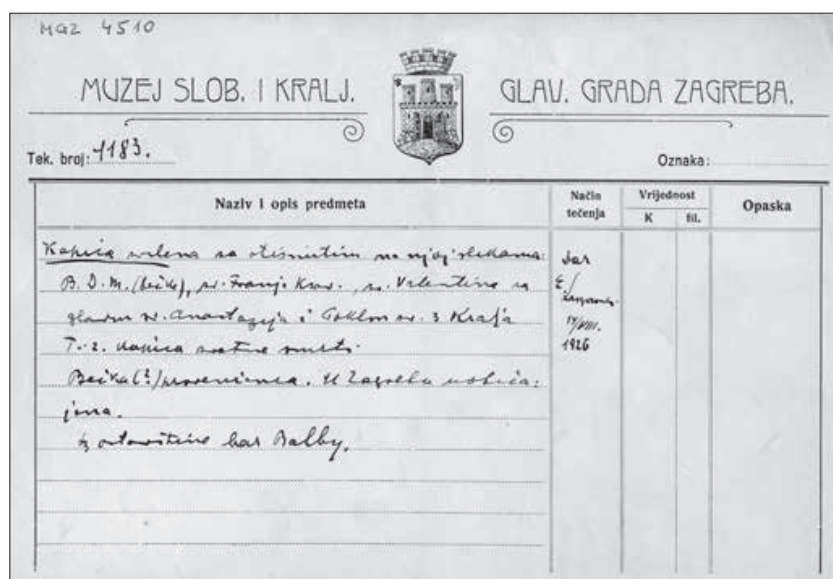 MGZ 4510
MUZEJ SLOB. I KRALJ. GLAV. GRADA ZAGREBA.
Tek. broj: 1183. Oznaka:
Naziv i opis predmeta Način tečenja Vrijednost K fil. Opaska
Kapica svilena sa otisnutim na njoj slikama: dar
B. D. M. (bečke), sv. Franje Ksav., sv. Valentina sa
glavom sv. Anastazija i Poklon sv. 3 Kralja 14/VIII.
T. z. kapica svetne smrti. 1926
Bečka (?) provenienca. U Zagrebu uobiča=
jena.
Iz ostavštine bar Balby.